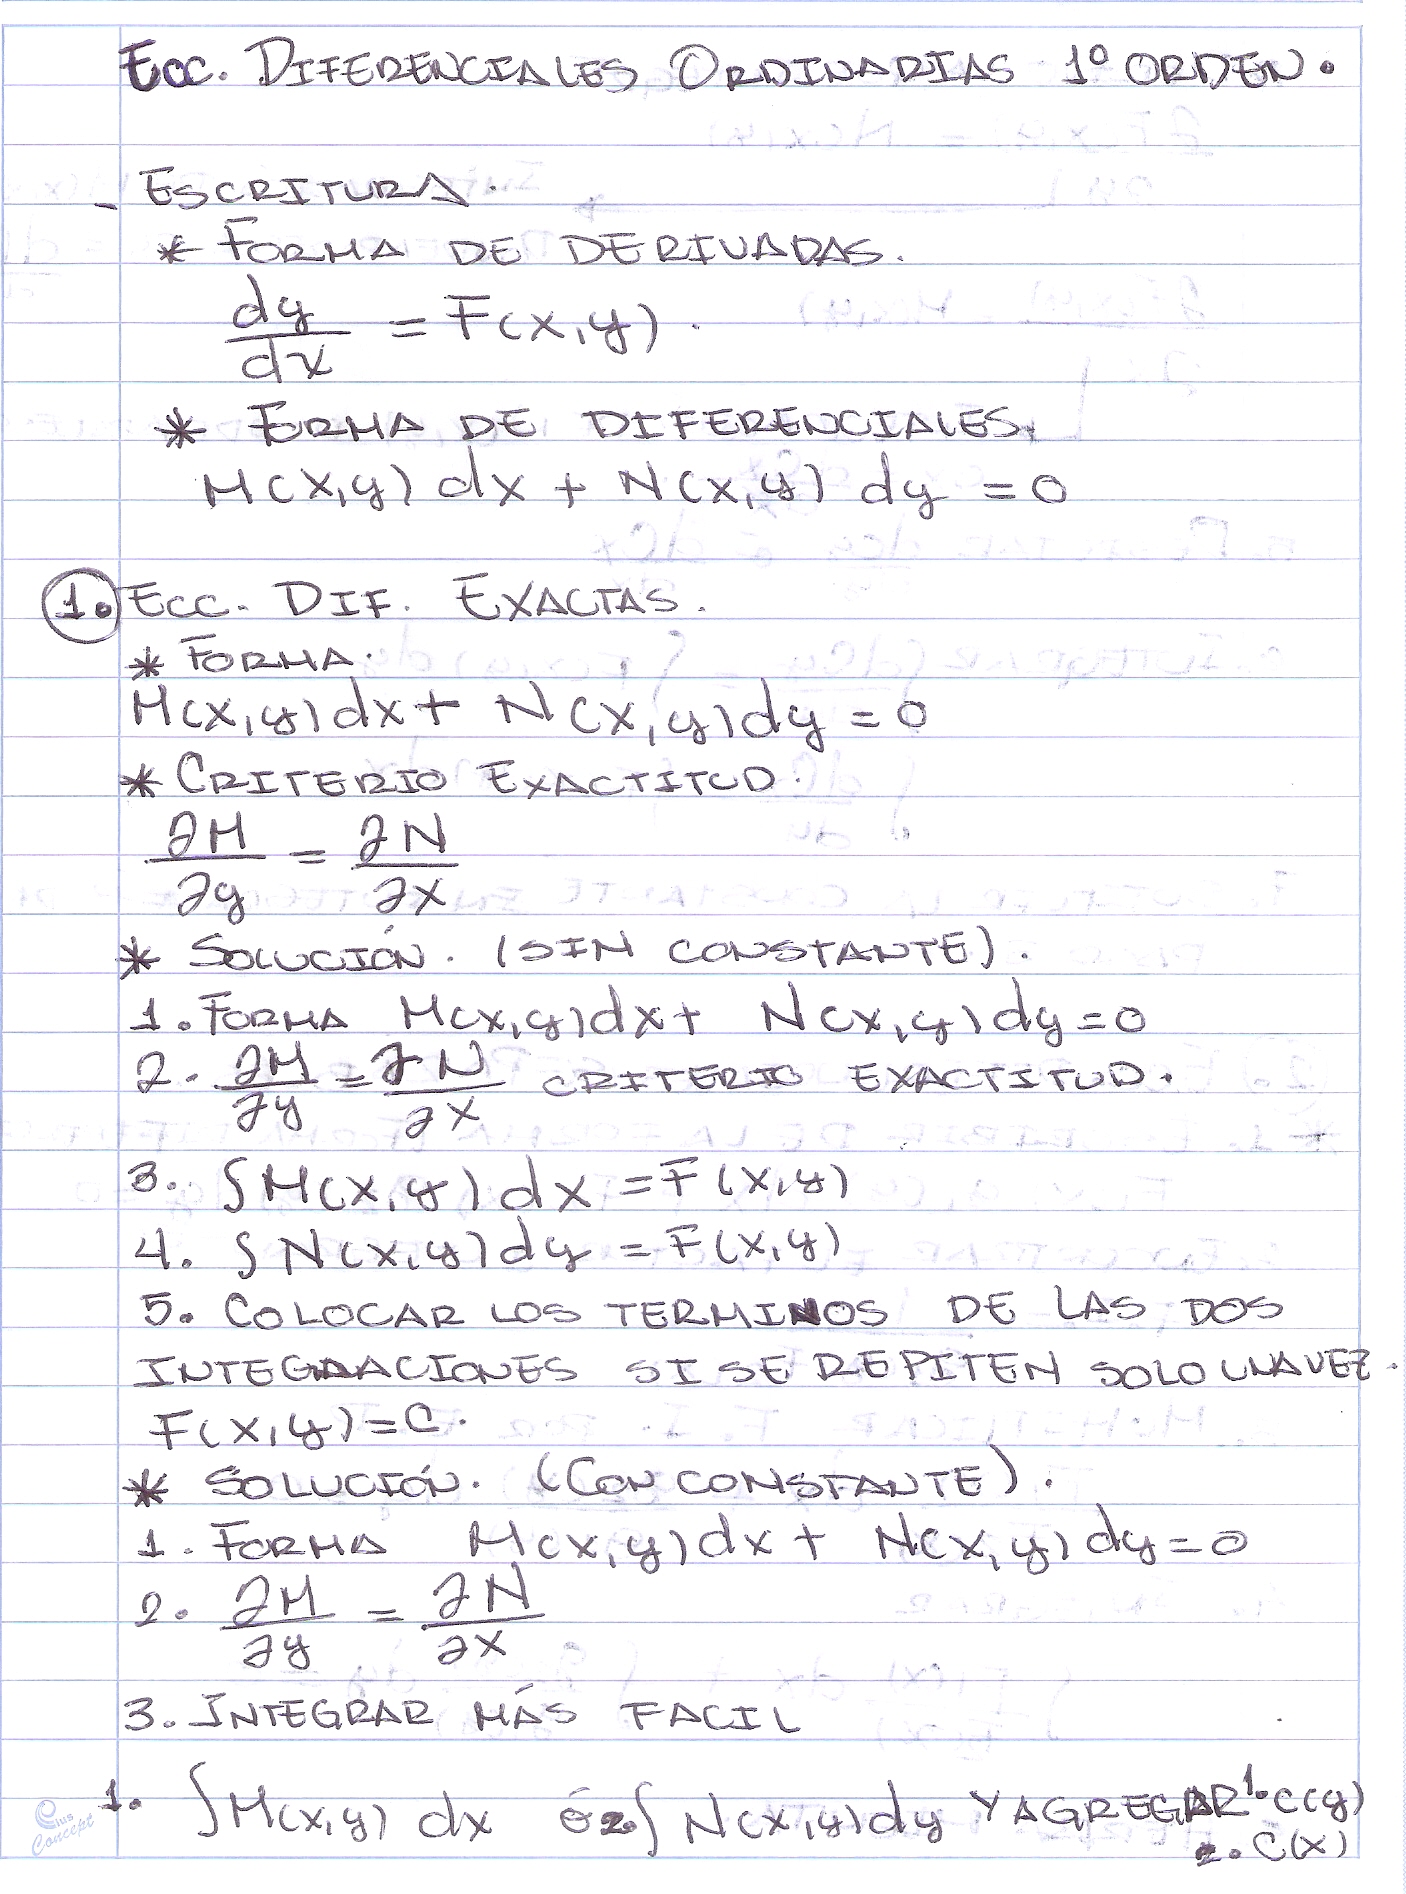 Ecc. DIFERENCIALES ORDINARIAS 1º ORDEN.
- ESCRITURA.
* FORMA DE DERIVADAS.
dy/dx = F(x,y).
* FORMA DE DIFERENCIALES.
M(x,y) dx + N(x,y) dy = 0
1. ECC. DIF. EXACTAS.
* FORMA.
M(x,y)dx + N(x,y)dy = 0
* CRITERIO EXACTITUD.
∂M/∂y = ∂N/∂x
* SOLUCIÓN. (SIN CONSTANTE).
1. FORMA M(x,y)dx + N(x,y)dy=0
2. ∂M/∂y = ∂N/∂x CRITERIO EXACTITUD.
3. ∫M(x,y)dx = F(x,y)
4. ∫N(x,y)dy = F(x,y)
5. COLOCAR LOS TERMINOS DE LAS DOS
INTEGRACIONES SI SE REPITEN SOLO UNA VEZ.
F(x,y)=C.
* SOLUCIÓN. (CON CONSTANTE).
1. FORMA M(x,y)dx + N(x,y)dy=0
2. ∂M/∂y = ∂N/∂x
3. INTEGRAR MÁS FACIL
1. ∫M(x,y) dx ó 2. ∫N(x,y)dy Y AGREGAR 1. C(y)
2. C(x)
Cius
Concept